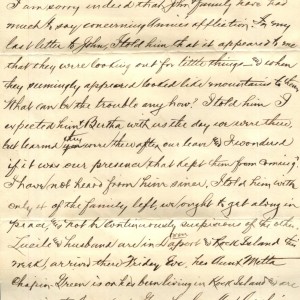 I am sorry indeed that John family have had
much to say concerning Annies affliction. In my
last letter to John, I told him that it appeared to me
that they were looking out for little things & when
they seemingly appeared looked like mountains to them.
What can be the trouble any how? I told him I
expected him & Bertha with us the day we were there,
but learned they were there after our leave & I wondered
if it was our presence that kept them from coming?
I have not heard from him since, I told him with
only of the family left, we ought to get along in
peace, & not be continuously suspicious of the other.
Lucile & husband are in from & Rock Island this
week, arrived there Friday Eve, her Aunt
Chapin been living in Rock Island & are